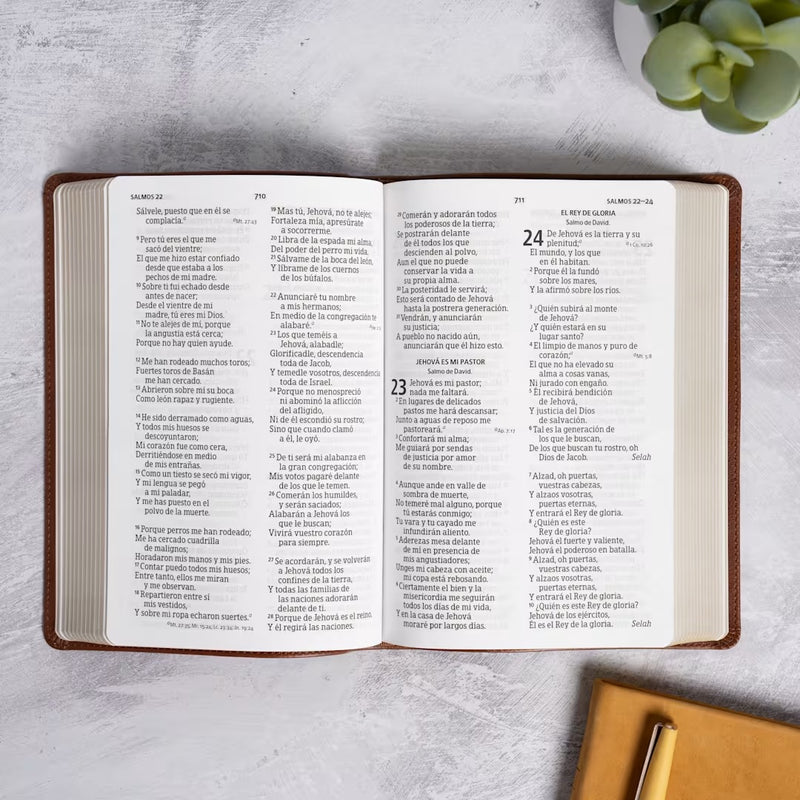 SALMOS 22
710
Sálvele, puesto que en él se
complacía.
Mt. 27.43
9 Pero tú eres el que me
sacó del vientre;
El que me hizo estar confiado
desde que estaba a los
pechos de mi madre.
10 Sobre ti fui echado desde
antes de nacer;
Desde el vientre de mi
madre, tú eres mi Dios.
11 No te alejes de mí, porque
la angustia está cerca;
Porque no hay quien ayude.
12 Me han rodeado muchos toros;
Fuertes toros de Basán
me han cercado.
13 Abrieron sobre mí su boca
Como león rapaz y rugiente.
14 He sido derramado como aguas,
Y todos mis huesos se
descoyuntaron;
Mi corazón fue como cera,
Derritiéndose en medio
de mis entrañas.
15 Como un tiesto se secó mi vigor,
Y mi lengua se pegó
a mi paladar,
Y me has puesto en el
polvo de la muerte.
16 Porque perros me han rodeado;
Me ha cercado cuadrilla
de malignos;
Horadaron mis manos y mis pies.
17 Contar puedo todos mis huesos;
Entre tanto, ellos me miran
y me observan.
18 Repartieron entre sí
mis vestidos,
Y sobre mi ropa echaron suertes.
Mt. 27.35; Mr. 15.24; Lc. 23.34; Jn. 19.24
19 Mas tú, Jehová, no te alejes;
Fortaleza mía, apresúrate
a socorrerme.
20 Libra de la espada mi alma,
Del poder del perro mi vida.
21 Sálvame de la boca del león,
Y líbrame de los cuernos
de los búfalos.
22 Anunciaré tu nombre
a mis hermanos;
En medio de la congregación te
alabaré.
23 Los que teméis a
Jehová, alabadle;
Glorificadle, descendencia
toda de Jacob,
Y temedle vosotros, descendencia
toda de Israel.
24 Porque no menospreció
ni abominó la aflicción
del afligido,
Ni de él escondió su rostro;
Sino que cuando clamó
a él, le oyó.
25 De ti será mi alabanza en
la gran congregación;
Mis votos pagaré delante
de los que le temen.
26 Comerán los humildes,
y serán saciados;
Alabarán a Jehová los
que le buscan;
Vivirá vuestro corazón
para siempre.
27 Se acordarán, y se volverán
a Jehová todos los
confines de la tierra,
Y todas las familias de
las naciones adorarán
delante de ti.
28 Porque de Jehová es el reino,
Y él regirá las naciones.
711
SALMOS 22–24
29 Comerán y adorarán todos
los poderosos de la tierra;
Se postrarán delante
de él todos los que
descienden al polvo,
Aun el que no puede
conservar la vida a
su propia alma.
30 La posteridad le servirá;
Esto será contado de Jehová
hasta la postrera generación.
31 Vendrán, y anunciarán
su justicia;
A pueblo no nacido aún,
anunciarán que él hizo esto.
JEHOVÁ ES MI PASTOR
Salmo de David.
23 Jehová es mi pastor;
nada me faltará.
2 En lugares de delicados
pastos me hará descansar;
Junto a aguas de reposo me
pastoreará.
Ap. 7.17
3 Confortará mi alma;
Me guiará por sendas
de justicia por amor
de su nombre.
4 Aunque ande en valle de
sombra de muerte,
No temeré mal alguno, porque
tú estarás conmigo;
Tu vara y tu cayado me
infundirán aliento.
5 Aderezas mesa delante
de mí en presencia de
mis angustiadores;
Unges mi cabeza con aceite;
mi copa está rebosando.
6 Ciertamente el bien y la
misericordia me seguirán
todos los días de mi vida,
Y en la casa de Jehová
moraré por largos días.
EL REY DE GLORIA
Salmo de David.
24 De Jehová es la tierra y su
plenitud;
1 Co. 10.26
El mundo, y los que
en él habitan.
2 Porque él la fundó
sobre los mares,
Y la afirmó sobre los ríos.
3 ¿Quién subirá al monte
de Jehová?
¿Y quién estará en su
lugar santo?
4 El limpio de manos y puro de
corazón;
Mt. 5.8
El que no ha elevado su
alma a cosas vanas,
Ni jurado con engaño.
5 Él recibirá bendición
de Jehová,
Y justicia del Dios
de salvación.
6 Tal es la generación de
los que le buscan,
De los que buscan tu rostro, oh
Dios de Jacob. Selah
7 Alzad, oh puertas,
vuestras cabezas,
Y alzaos vosotras,
puertas eternas,
Y entrará el Rey de gloria.
8 ¿Quién es este
Rey de gloria?
Jehová el fuerte y valiente,
Jehová el poderoso en batalla.
9 Alzad, oh puertas,
vuestras cabezas,
Y alzaos vosotras,
puertas eternas,
Y entrará el Rey de gloria.
10 ¿Quién es este Rey de gloria?
Jehová de los ejércitos,
Él es el Rey de la gloria. Selah